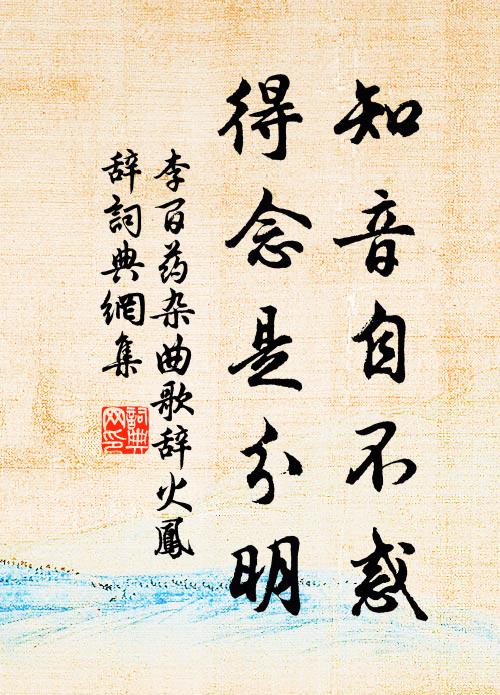 知音自不惑
得念是分明
李百药杂曲歌辞火鳳
辞詞典網集
詞典
网印